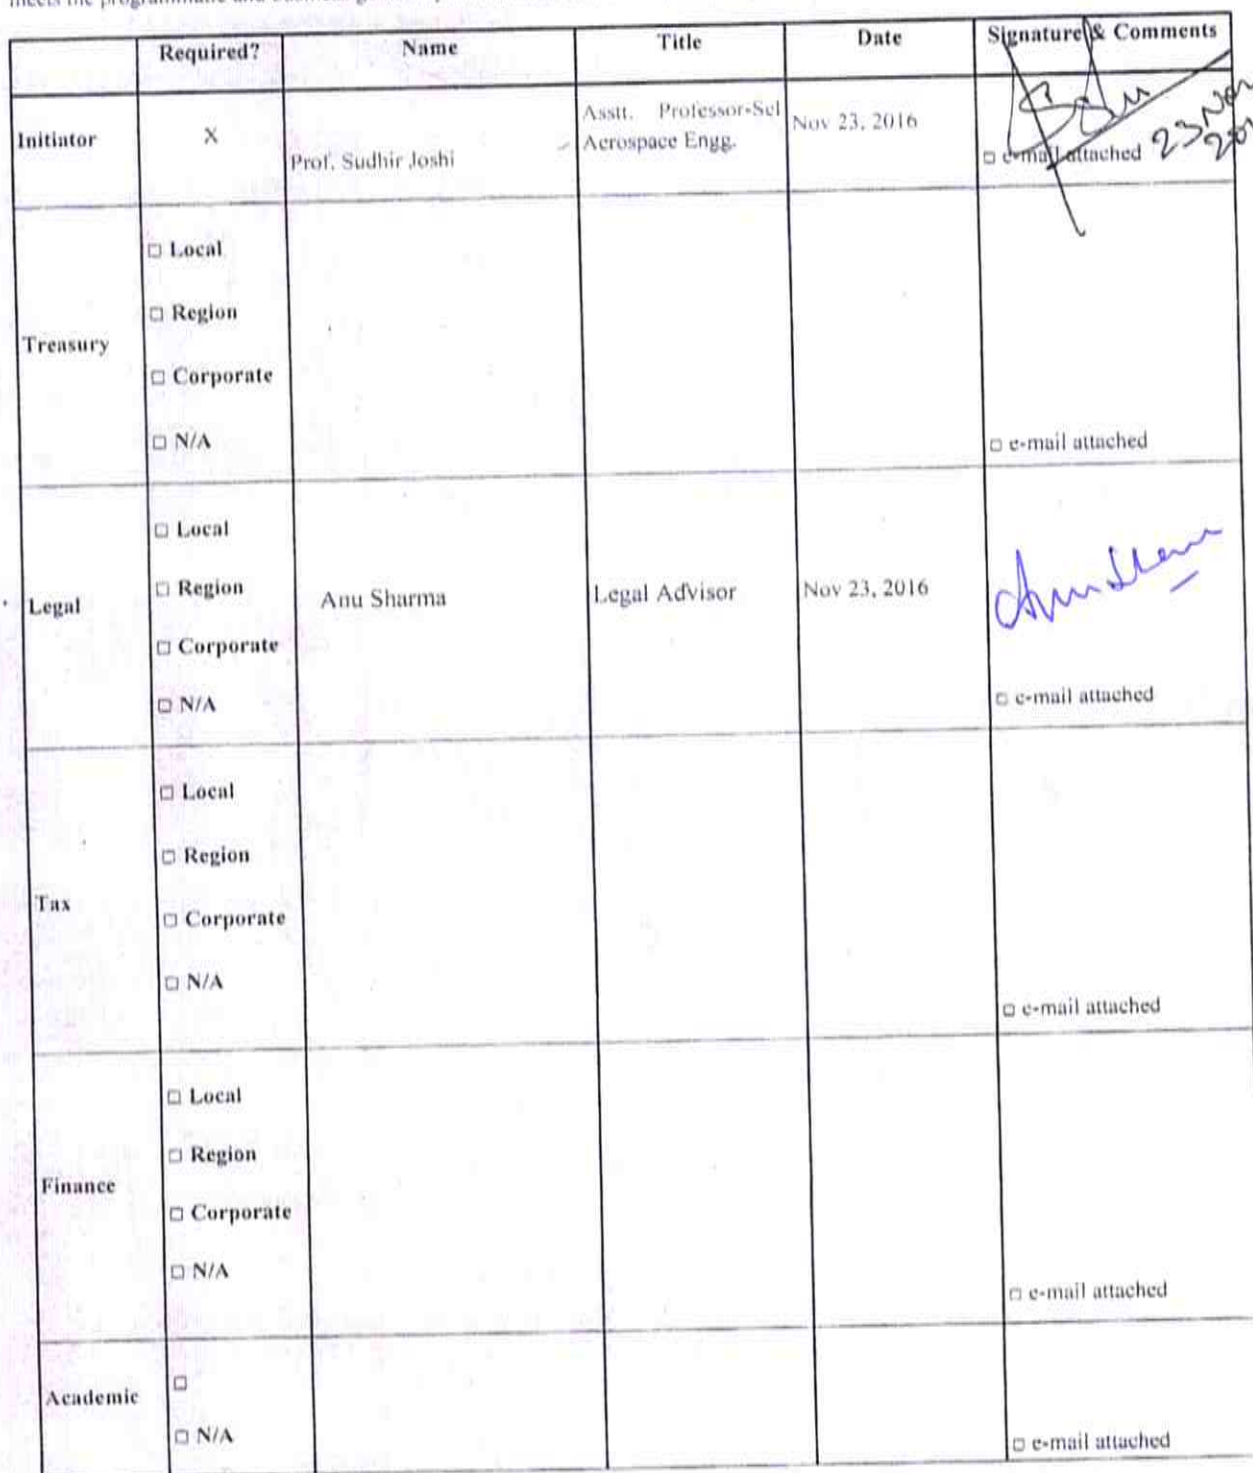 meets the programmatic and business
Required? Name Title Date Signature & Comments
Initiator X Prof. Sudhir Joshi Asstt. Professor-Scl Aerospace Engg. Nov 23, 2016 23 Nov
□ e-mail attached
Treasury
□ Local
□ Region
□ Corporate
□ N/A
□ e-mail attached
Legal
□ Local
□ Region
□ Corporate
□ N/A
Anu Sharma Legal Advisor Nov 23, 2016
□ e-mail attached
Tax
□ Local
□ Region
□ Corporate
□ N/A
□ e-mail attached
Finance
□ Local
□ Region
□ Corporate
□ N/A
□ e-mail attached
Academic
□
□ N/A
□ e-mail attached